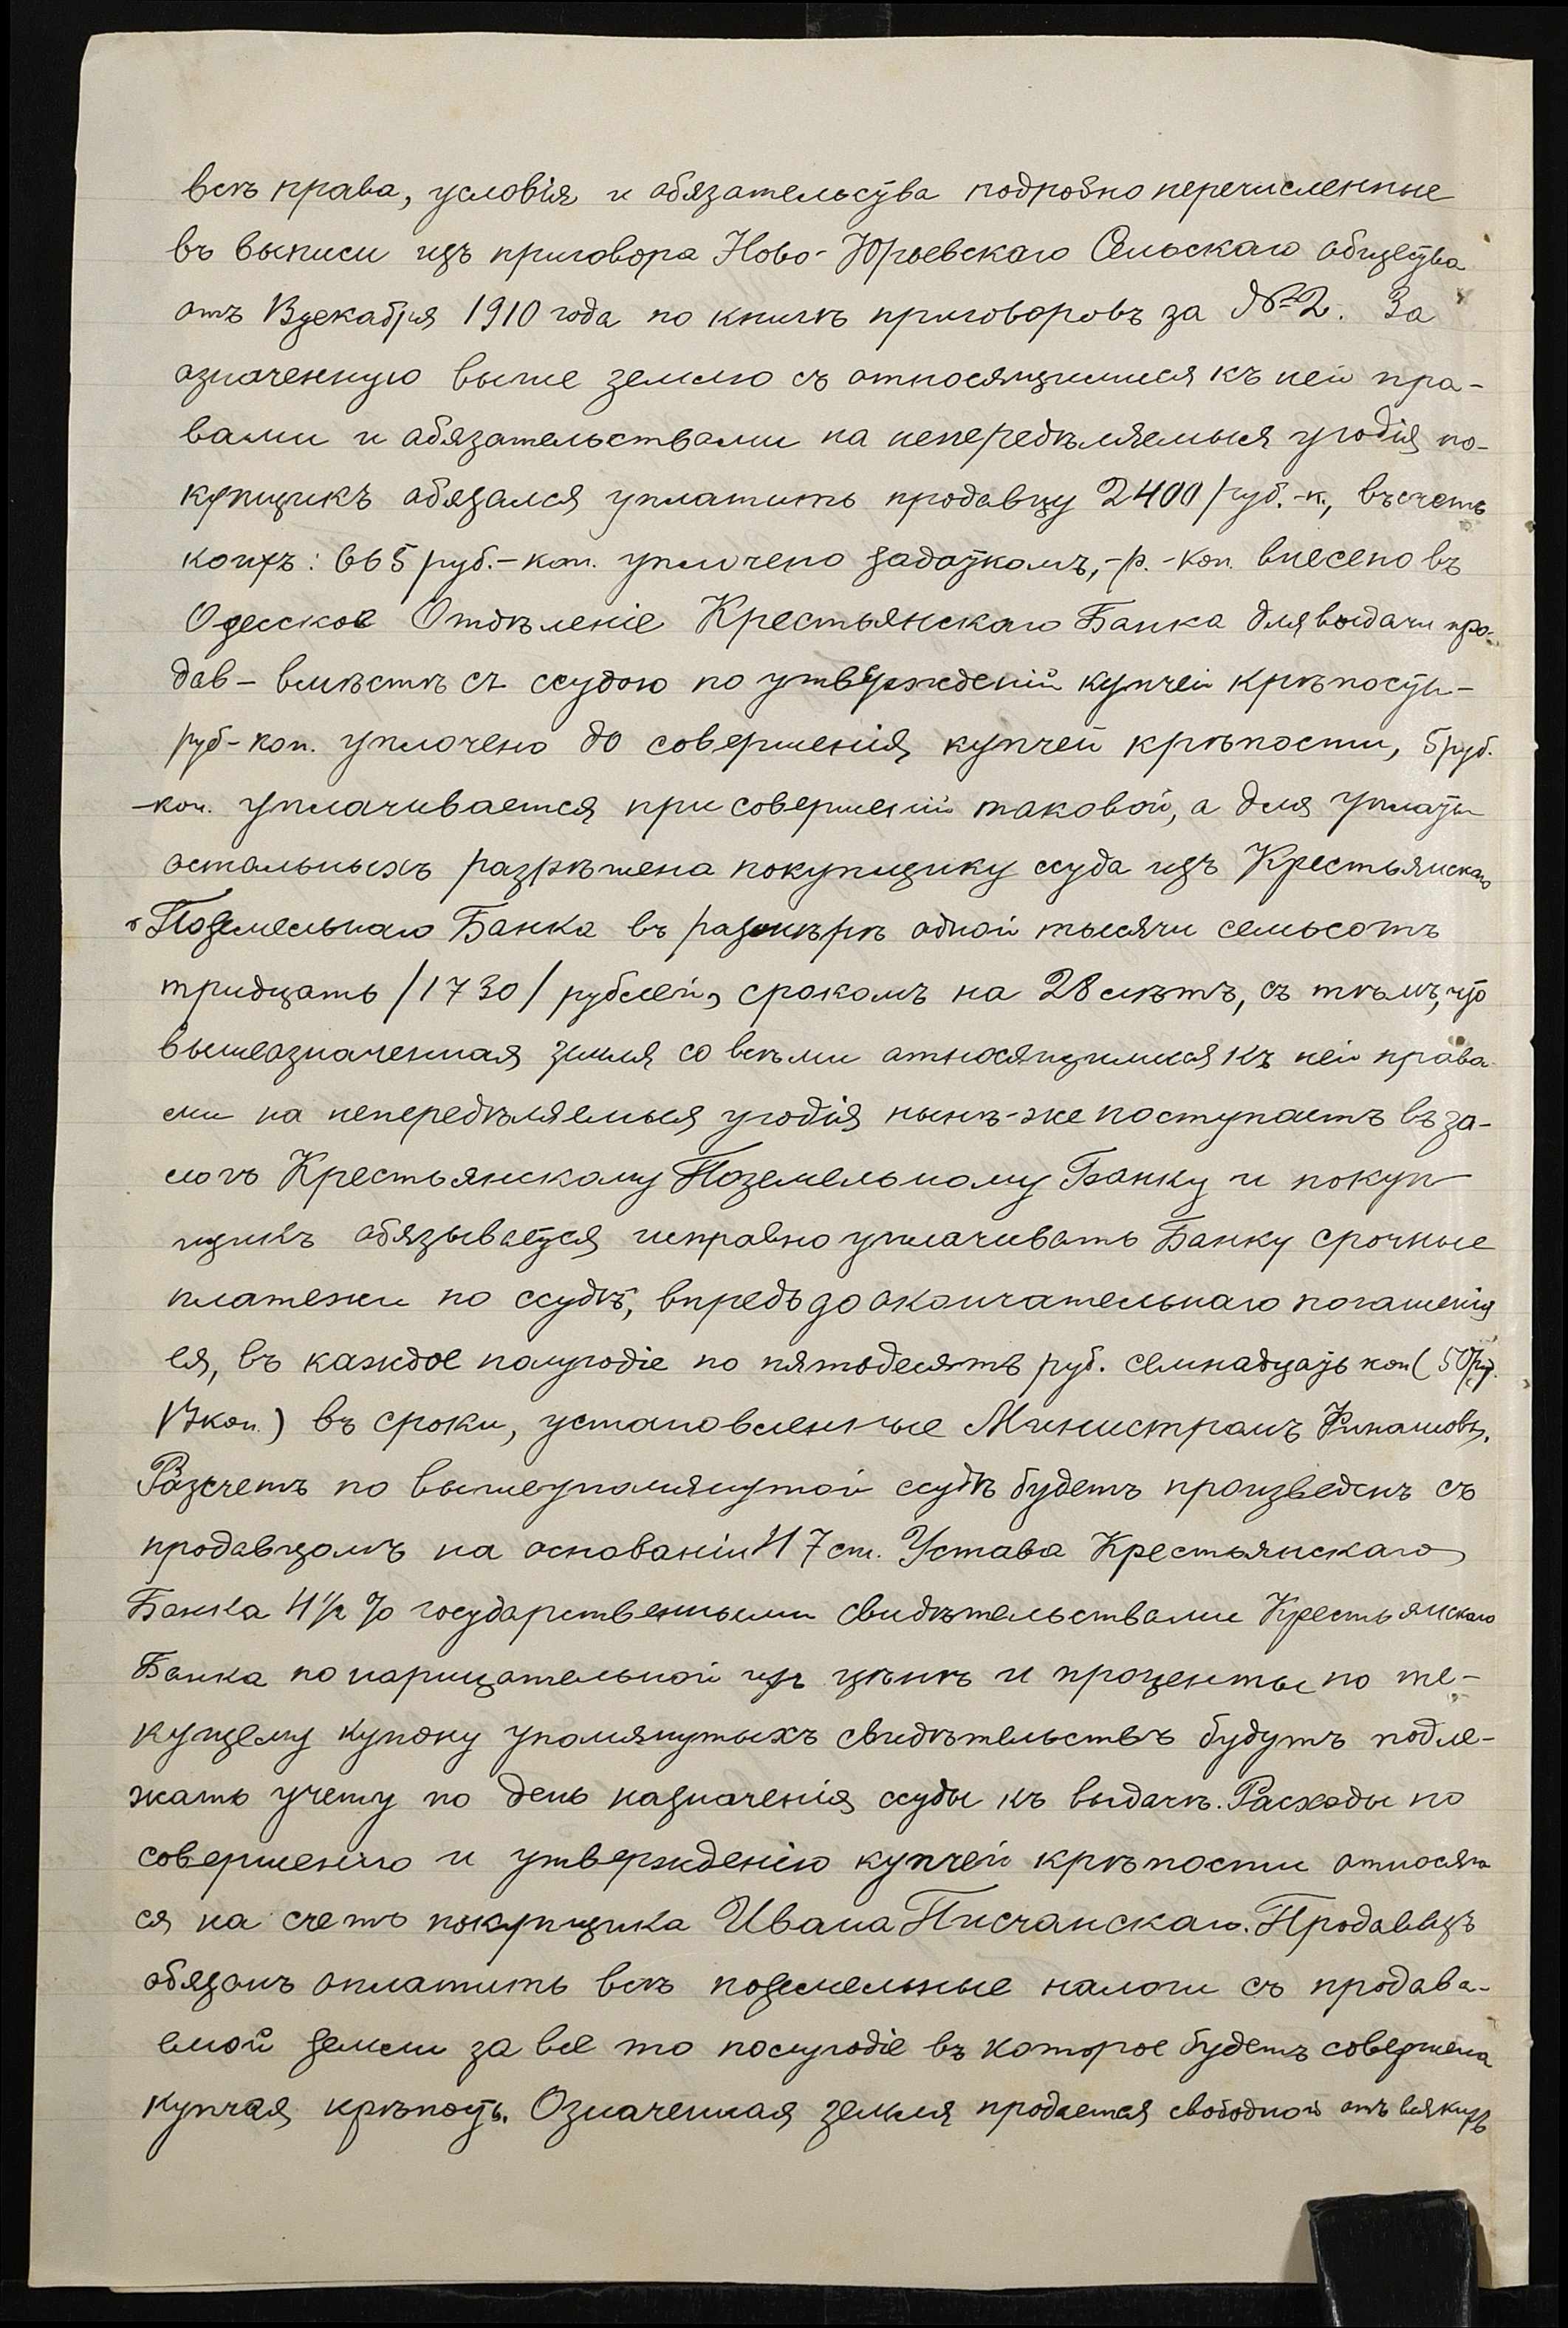 всѣ права, условія и обязательства подробно перечисленные
въ выписи изъ приговора Ново-Юрьевскаго Сельскаго общества
отъ 13 декабря 1910 года по книгѣ приговоровъ за № 2. За
означенную выше землю съ относящимися къ ней пра-
вами и обязательствами на непередѣляемыя угодія по-
купщикъ обязался уплатить продавцу 2400 руб.-к., въ счетъ
коихъ: 665 руб.-коп. уплочено задаткомъ, -р. -коп. внесено въ
Одесское Отдѣленіе Крестьянскаго Банка для выдачи про-
дав- вмѣстѣ съ ссудою по утвержденіи купчей крѣпости-
руб-коп. уплочено до совершенія купчей крѣпости, 5 руб.
-коп. уплачивается при совершеніи таковой, а для уплаты
остальныхъ разрѣшена покупщику ссуда изъ Крестьянскаго
Поземельнаго Банка въ размѣрѣ одной тысячи семьсотъ
тридцать /1730/ рублей, срокомъ на 28 лѣтъ, съ тѣмъ, что
вышеозначенная земля со всѣми относящимися къ ней права-
ми на непередѣляемыя угодія нынѣ-же поступаетъ въ за-
логъ Крестьянскому Поземельному Банку и покуп-
щикъ обязывается исправно уплачивать Банку срочные
платежи по ссудѣ, впредь до окончательнаго погашенія
ея, въ каждое полугодіе по пятьдесятъ руб. семнадцать коп (50 руб.
17 коп.) въ сроки, установленные Министромъ Финансовъ.
Разсчетъ по вышеупомянутой ссудѣ будетъ произведенъ съ
продавцомъ на основаніи 47 ст. Устава Крестьянскаго
Банка 4½ % государственными свидѣтельствами Крестьянскаго
Банка по нарицательной ихъ цѣнѣ и проценты по те-
кущему купону упомянутыхъ свидѣтельствъ будутъ подле-
жать учету по день назначенія ссуды къ выдачѣ. Расходы по
совершенію и утвержденію купчей крѣпости относят
ся на счетъ покупщика Ивана Писчанскаго. Продавецъ
обязанъ оплатить всѣ поземельные налоги съ продава-
емой земли за все то полугодіе въ которое будетъ совершена
купчая крѣпость. Означенная земля продается свободной отъ всякихъ